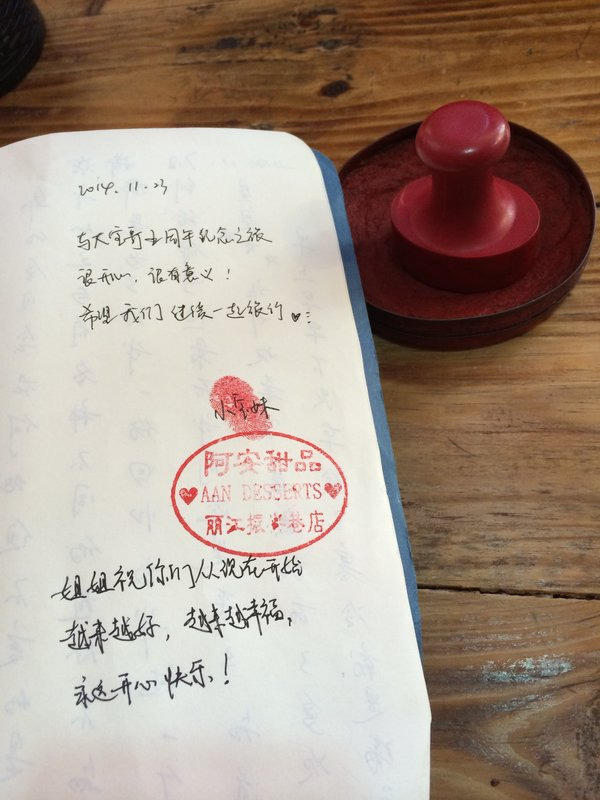 2014.11.23
与大宝哥五周年纪念之旅
很开心，很有意义！
希望我们继续一起旅行
小宝妹
阿安甜品
AAN DESSERTS
丽江振兴巷店
姐姐祝你们从现在开始
越来越好，越来越幸福，
永远开心快乐！